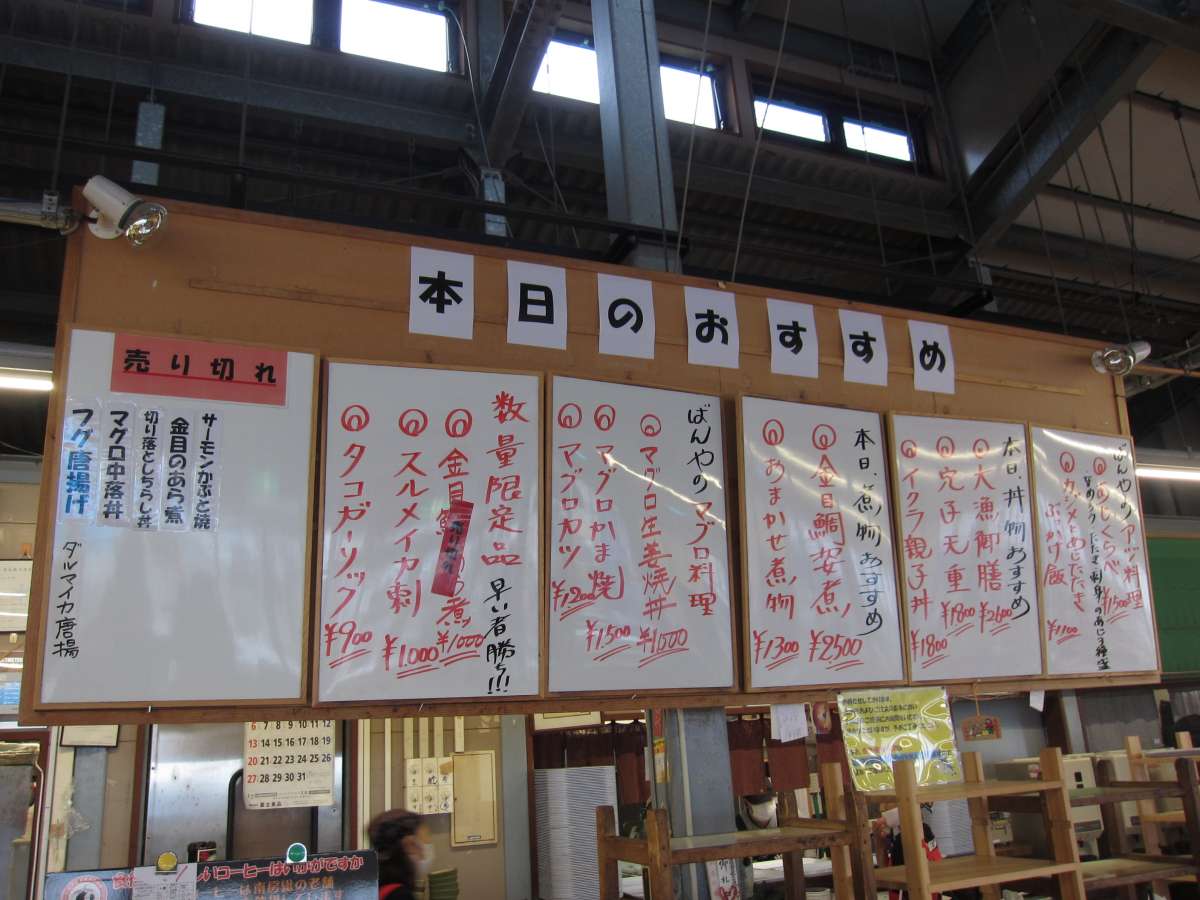 本日のおすすめ
ばんやのアジ料理
なめろう たたき 刺身のあじ3種盛
¥1500
カジメとあじたたき
ぶっかけ飯
¥1100
本日、丼物おすすめ
大漁御膳
¥2600
穴子天重
¥1800
イクラ親子丼
¥1800
本日、煮物おすすめ
金目鯛姿煮
¥2500
おまかせ煮物
¥1300
ばんやのマグロ料理
マグロ生姜焼丼
¥1000
マグロかま焼
¥1,500
マグロカツ
¥1200
数量限定品
早い者勝ち!!!
金目鯛
煮
¥1000
スルメイカ刺
¥1.000
タコガーリック
¥900
売り切れ
サーモンかぶと焼
金目のあら煮
切り落としちらし丼
マグロ中落丼
フグ唐揚げ
ダルマイカ唐揚
6 7 8 9 10 11 12
13 14 15 16 17 18 19
20 21 22 23 24 25 26
27 28 29 30 31
いコーヒーはいかがですか